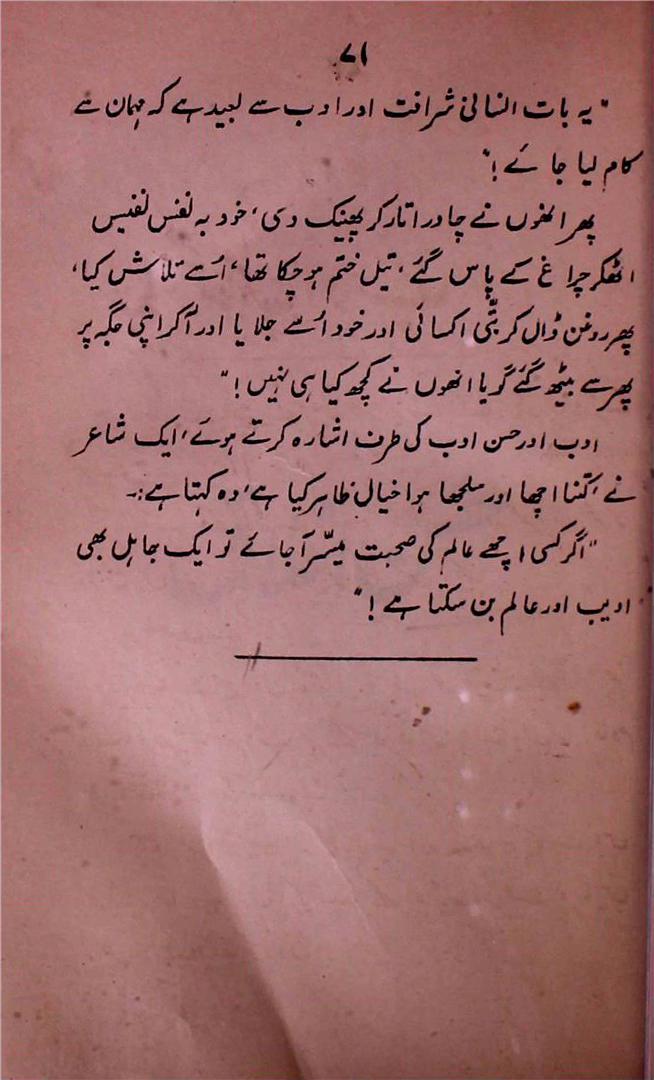 ۷۱
"یہ بات انسانی شرافت اور ادب سے بعید ہے کہ مہمان سے
کام لیا جائے!"
پھر انھوں نے چادر اتار کر پھینک دی، خود بہ نفس نفیس
اٹھکر چراغ کے پاس گئے، تیل ختم ہو چکا تھا، اُسے تلاش کیا،
پھر روغن ڈال کر بتّی اکسائی اور خود اُسے جلایا اور آکر اپنی جگہ پر
پھر سے بیٹھ گئے گویا انھوں نے کچھ کیا ہی نہیں!"
ادب اور حسن ادب کی طرف اشارہ کرتے ہوئے، ایک شاعر
نے، کتنا اچھا اور سلجھا ہوا خیال ظاہر کیا ہے، وہ کہتا ہے:۔
"اگر کسی اچھے عالم کی صحبت میسّر آجائے تو ایک جاہل بھی
ادیب اور عالم بن سکتا ہے!"